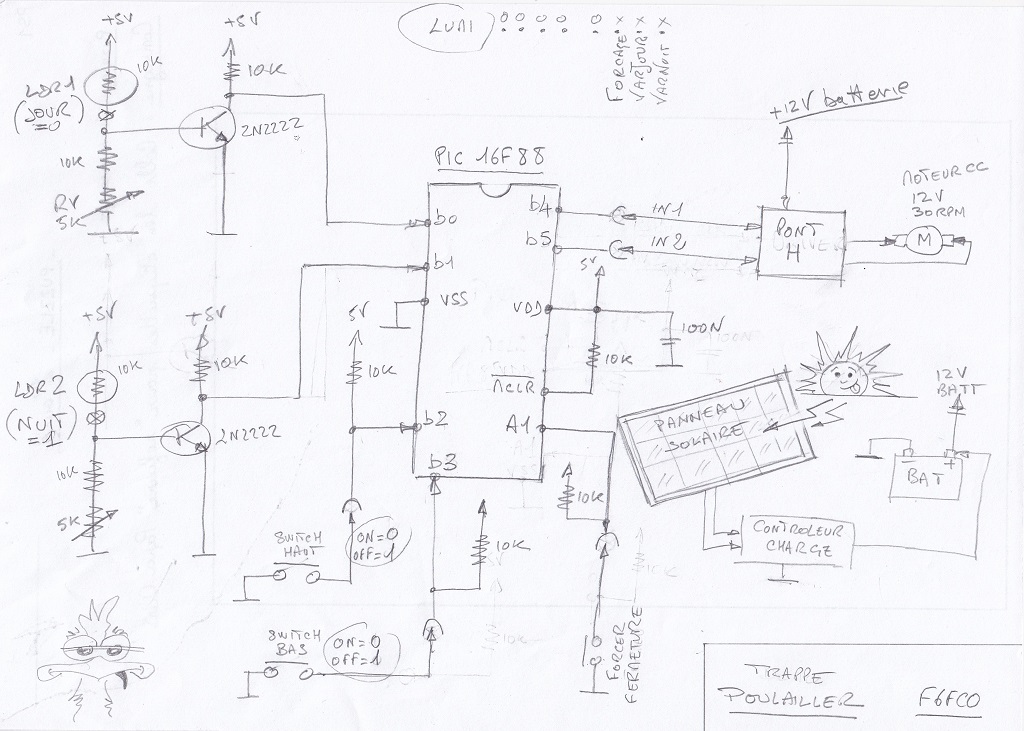 +5V
+5V
LUMI
FORCAGE
VARJOUR
VARNUIT
10K
10K
LDR1
(JOUR)
=0
2N2222
10K
RV
5K
+12V batterie
PIC 16F88
MOTEUR CC
12V
30RPM
b0
b4
IN1
b5
IN2
PONT
H
M
b1
VSS
5V
VDD
100N
10K
MCLR
A1
+5V
+5V
5V
10K
10K
10K
LDR2
(NUIT)
=1
2N2222
10K
5K
b2
b3
PANNEAU
SOLAIRE
12V
BATT
- +
BAT
10K
10K
CONTROLEUR
CHARGE
SWITCH
HAUT
ON=0
OFF=1
SWITCH
BAS
ON=0
OFF=1
FORCER
FERMETURE
TRAPPE
POULAILLER
F6FCO